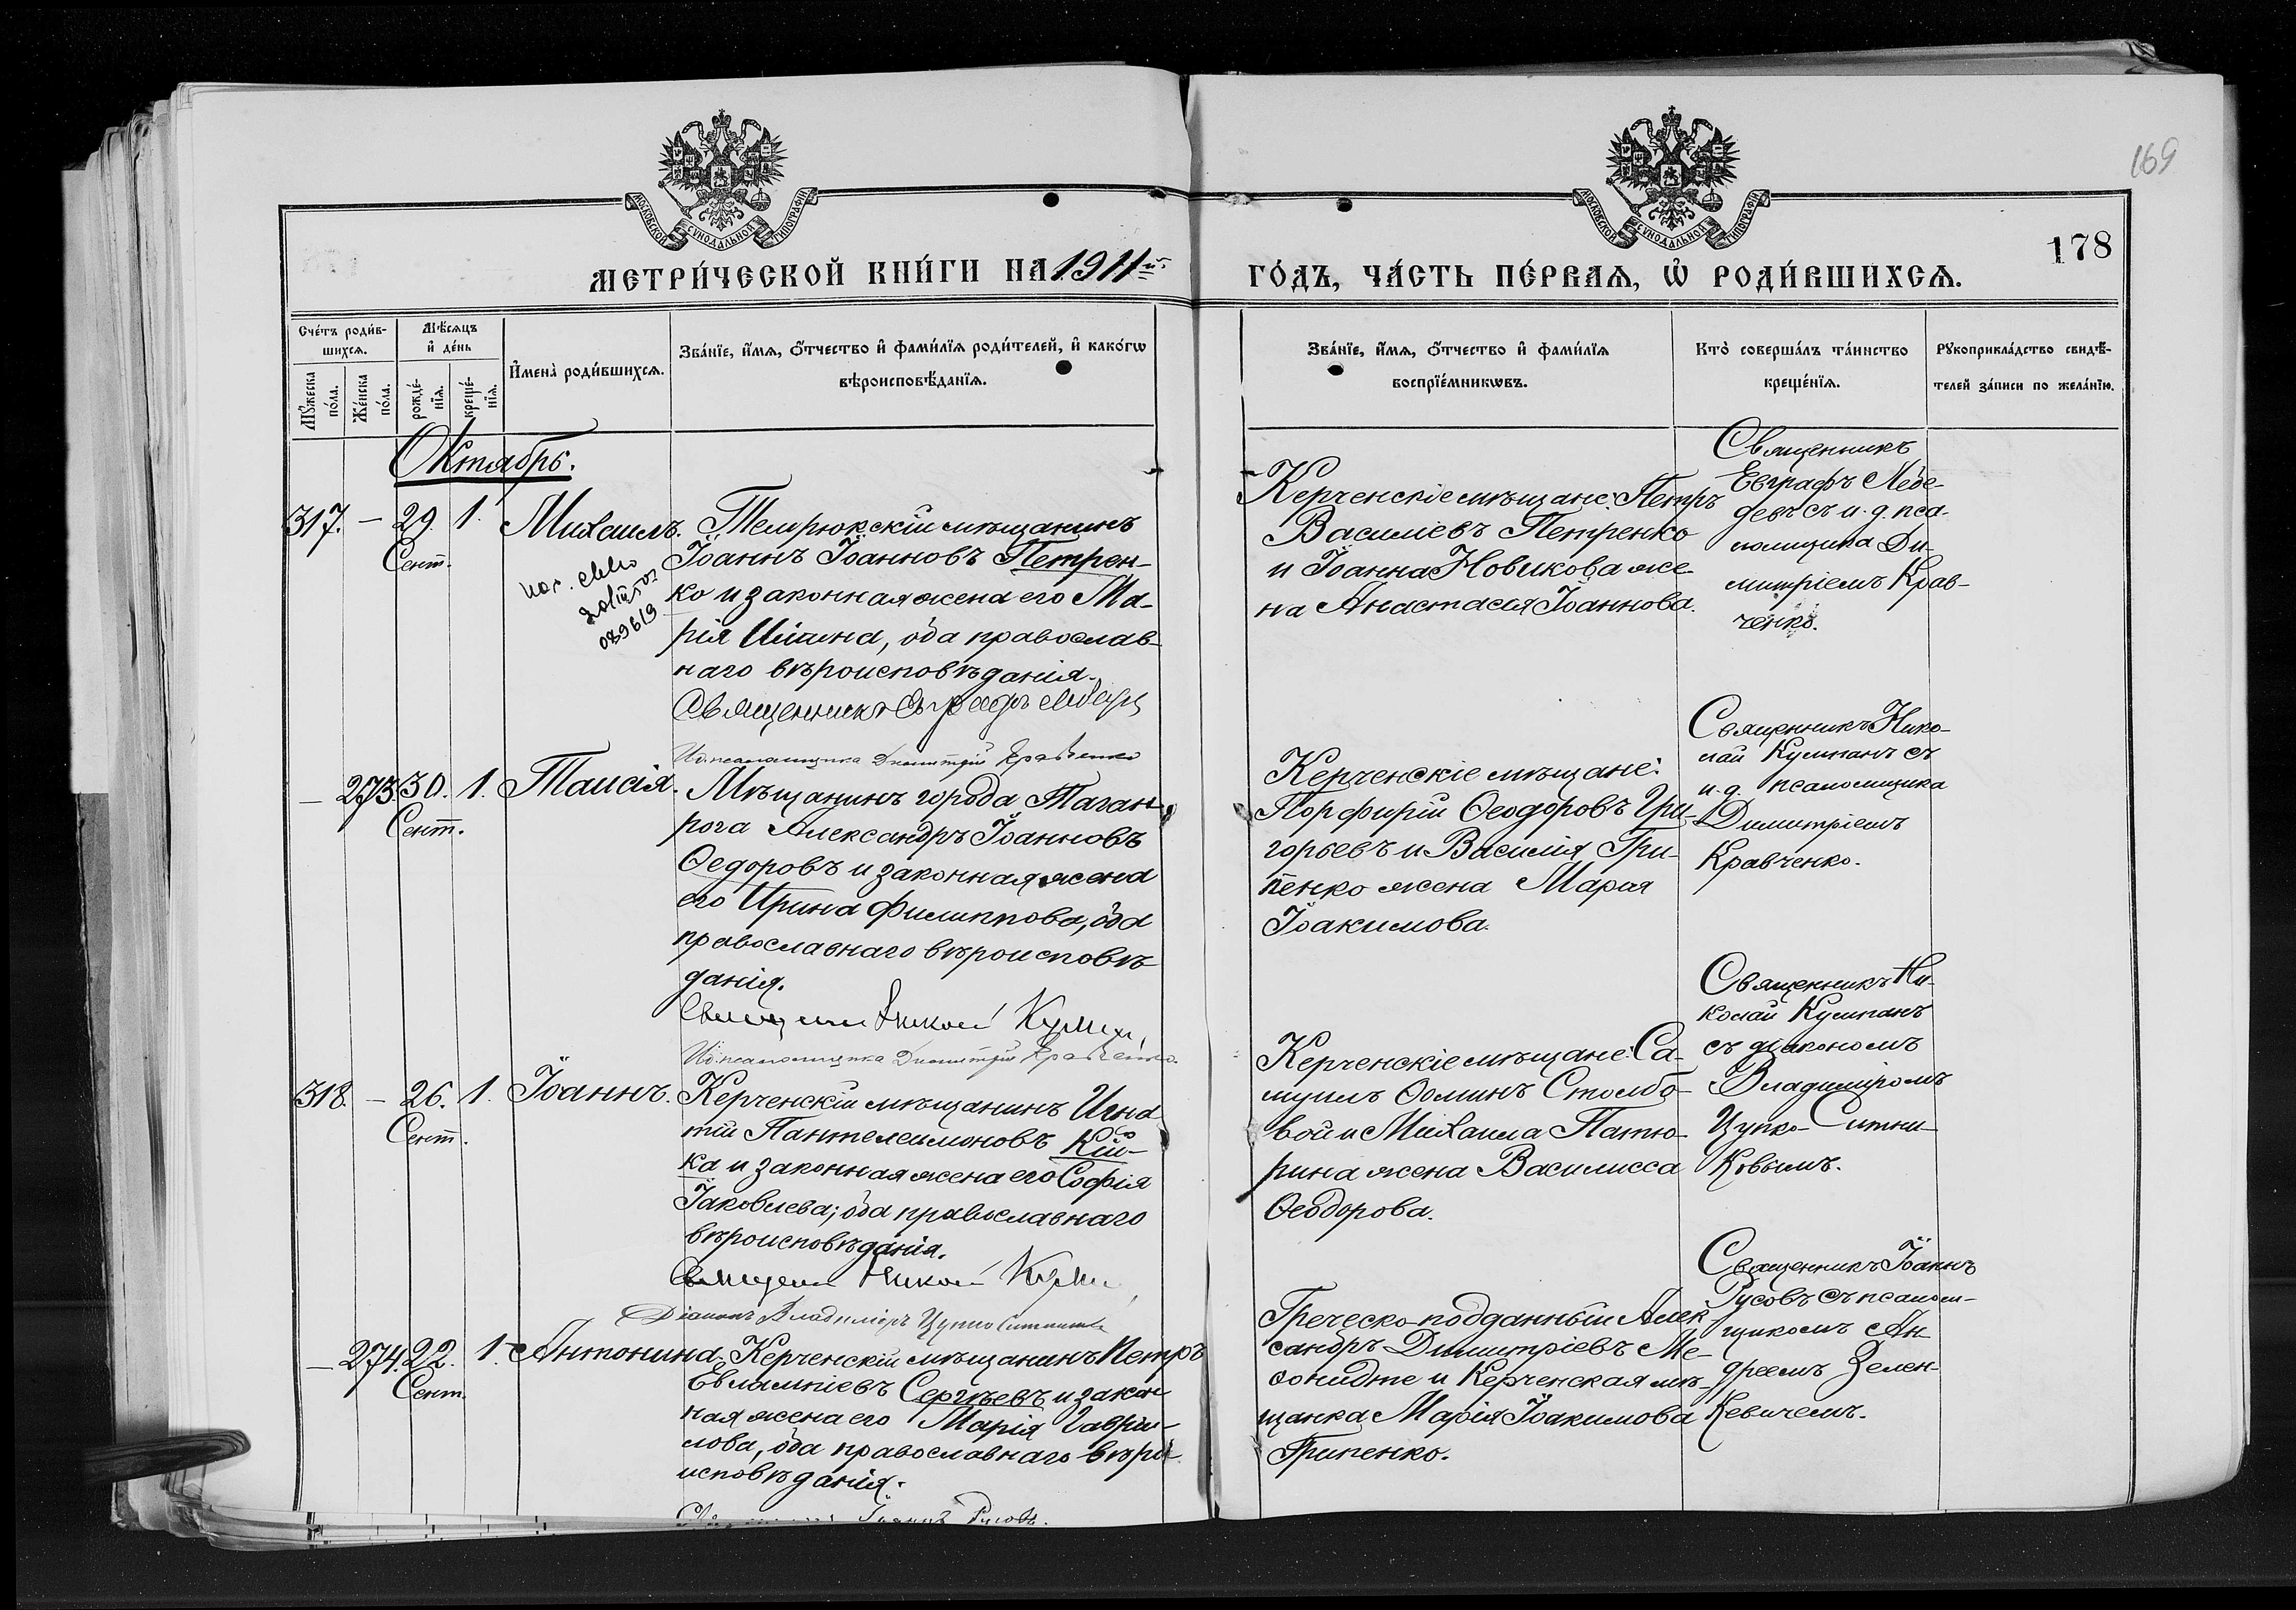 169
178
МОСКОВСКОЙ СѴНОДАЛЬНОЙ ТИПОГРАФІИ
МОСКОВСКОЙ СѴНОДАЛЬНОЙ ТИПОГРАФІИ
МЕТРИ́ЧЕСКОЙ КНИ́ГИ НА 1911й
ГО́ДЪ, ЧА́СТЬ ПЕ́РВАѦ, Ѡ҆ РОДИ́ВШИХСѦ.
Сче́тъ роди́в-
шихсѧ.
Мѣ́сѧцъ
и҆ де́нь
Мꙋ́жеска
по́ла.
Же́нска
по́ла.
рожде́-
нїѧ.
креще́-
нїѧ.
И҆мена̀ роди́вшихсѧ.
Зва́нїе, и҆́мѧ, ѻ҆́тчество и҆ фами́лїѧ роди́телей, и҆ како́гѡ
вѣроисповѣ́данїѧ.
Зва́нїе, и҆́мѧ, ѻ҆́тчество и҆ фами́лїѧ
воспрїе́мникѡвъ.
Кто̀ соверша́лъ та́инство
креще́нїѧ.
Рꙋкоприкла́дство свидѣ́-
телей за́писи по жела́нїю.
Октябрь.
317. — 29. 1. Михаилъ.
Сент.
089619
Темрюкскій мѣщанинъ
Іоаннъ Іоанновъ Петрен-
ко и законная жена его Ма-
рія Ильина, оба православ-
наго вѣроисповѣданія.
Священникъ Евграфъ Лебедев
И.д. псаломщика Димитрій Кравченко
Керченскіе мѣщане: Петръ
Василіевъ Петренко
и Іоанна Новикова же-
на Анастасія Іоаннова.
Священникъ
Евграфъ Лебе-
девъ съ и. д. пса-
ломщика Ди-
митріемъ Крав-
ченко.
— 273. 30. 1. Таисія.
Сент.
Мѣщанинъ города Таган-
рога Александръ Іоанновъ
Ѳедоровъ и законная жена
его Ирина Филиппова, оба
православнаго вѣроисповѣ
данія.
Священник Николай
И.д. псаломщика Димитрій Кравченко.
Керченскіе мѣщане:
Порфирій Ѳеодоровъ Гри-
горьевъ и Василія Гри-
пенко жена Марія
Іоакимова.
Священникъ Нико-
лай Кулипанъ съ
и.д. псаломщика
Димитріемъ
Кравченко.
318. — 26. 1. Іоаннъ.
Сент.
Керченскій мѣщанинъ Игна
тій Пантелеимоновъ Кій-
ка и законная жена его Софія
Іаковлева; оба православнаго
вѣроисповѣданія.
Священ Николай
Діаконъ Владиміръ Цупко Ситников
Керченскіе мѣщане: Са-
муилъ Ѳоминъ Столбо-
вой и Михаила Патю-
рина жена Василисса
Ѳеодорова.
Священникъ Ни-
колай Кулипанъ
съ діакономъ
Владиміромъ
Цупко-Ситни-
ковымъ.
— 274. 22. 1. Антонина.
Сент.
Керченскій мѣщанинъ Петръ
Евлампіевъ Сергѣевъ и закон
ная жена его Марія Гаврі-
лова, оба православнаго вѣро
исповѣданія.
Священникъ Іоаннъ Русовъ.
Греческо-подданный Алек-
сандръ Димитріевъ Ме-
и Керченская мѣ-
щанка Марія Іоакимова
Грипенко.
Священникъ Іоаннъ
Русовъ съ псалом-
щикомъ Ан-
дреемъ Зелен-
кевичемъ.